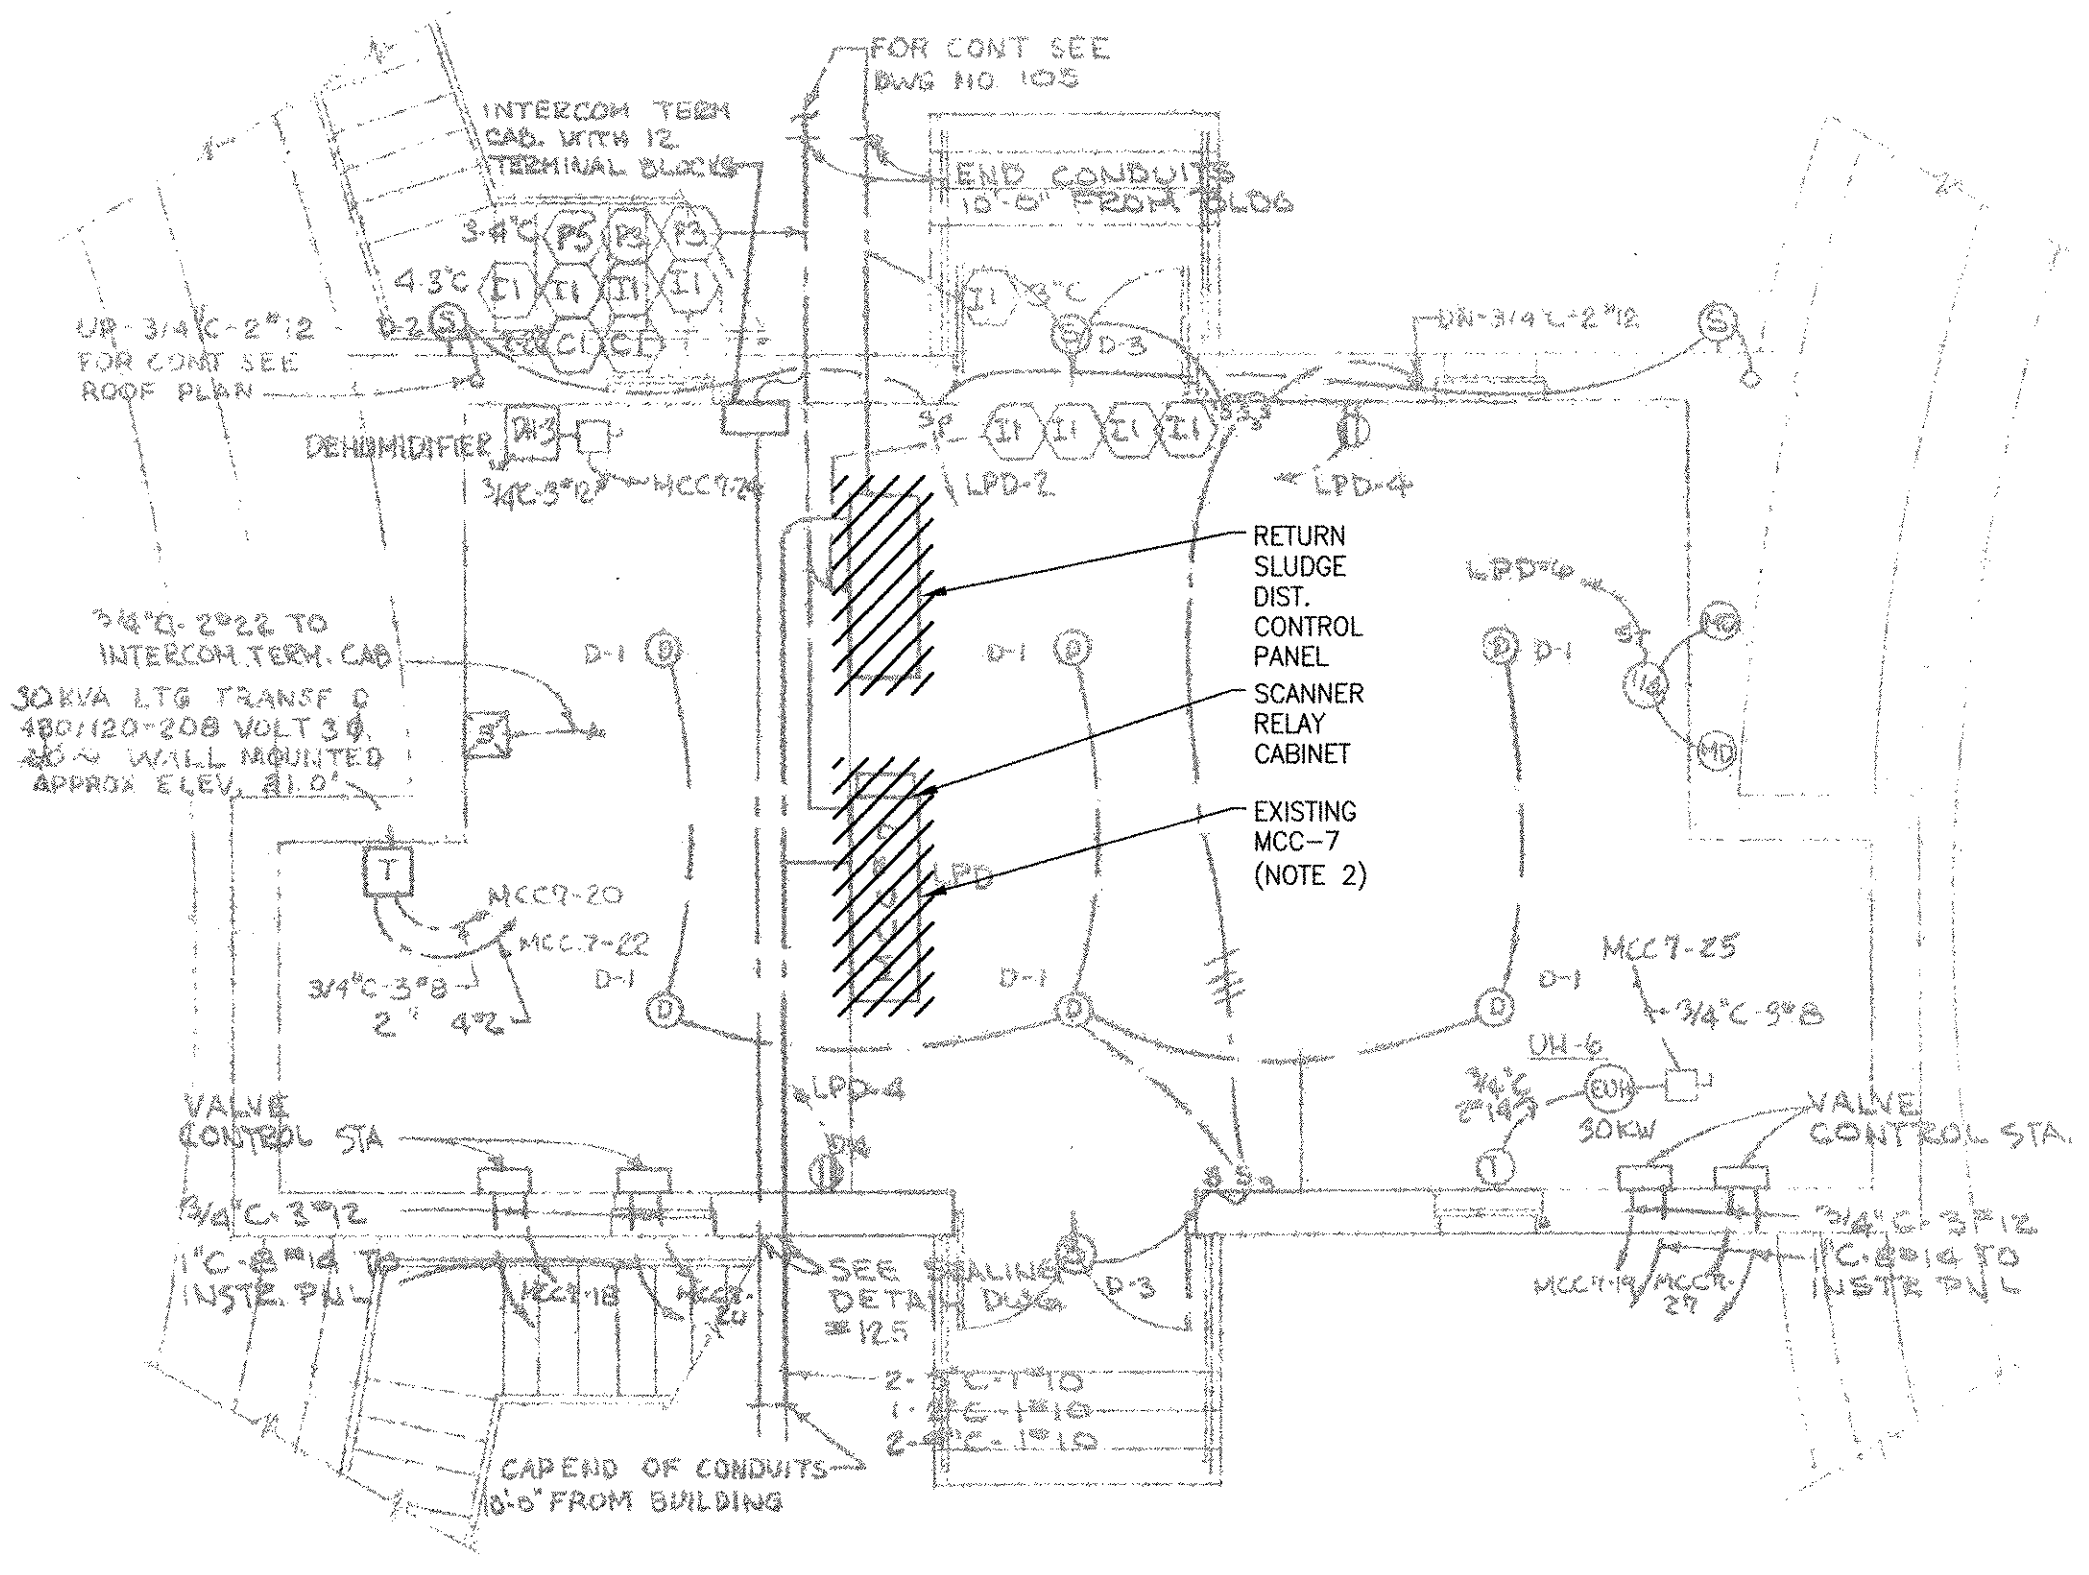 FOR CONT SEE
DWG NO. 105
INTERCOM TERM
CAB. WITH 12
TERMINAL BLOCKS
END CONDUITS
10'-0" FROM BLDG
3-4"C
P5
P3
P3
4-3"C
I1
I1
I1
I1
I1
3"C
UP-3/4"C-2#12
FOR CONT SEE
ROOF PLAN
D-2
S
C1
C1
S
D-3
DN-3/4"C-2#12
S
DEHUMIDIFIER
DH-3
3/4"C-3#12
I1
I1
I1
I1
LPD-2
LPD-4
RETURN
SLUDGE
DIST.
CONTROL
PANEL
SCANNER
RELAY
CABINET
EXISTING
MCC-7
(NOTE 2)
LPD-6
MD
1/6
MD
2#22 TO
INTERCOM. TERM. CAB
30 KVA LTG TRANSF D
480/120-208 VOLT 3Φ.
WALL MOUNTED
APPROX ELEV. 21.0'
D-1
D
D-1
D
D
D-1
T
MCC7-20
MCC.7-22
3/4"C-3#8
2" 4#2
LPD
D-1
D
D-1
D
D
D-1
MCC7-25
3/4"C-3#8
UH-6
3/4"C
2#14
EUH
30KW
T
LPD-4
VALVE
CONTROL STA
VALVE
CONTROL STA.
3/4"C-3#12
1"C-8#14 TO
INSTR. PNL
MCC7-18
SEE SEALING
DETAIL DWG
#125
D-3
3/4"C-3#12
1"C-8#14 TO
INSTR PNL
MCC7-19
MCC7-
27
2-3"C-1#10
1-2"C-1#10
2-4"C-1#10
CAP END OF CONDUITS
10'-0" FROM BUILDING